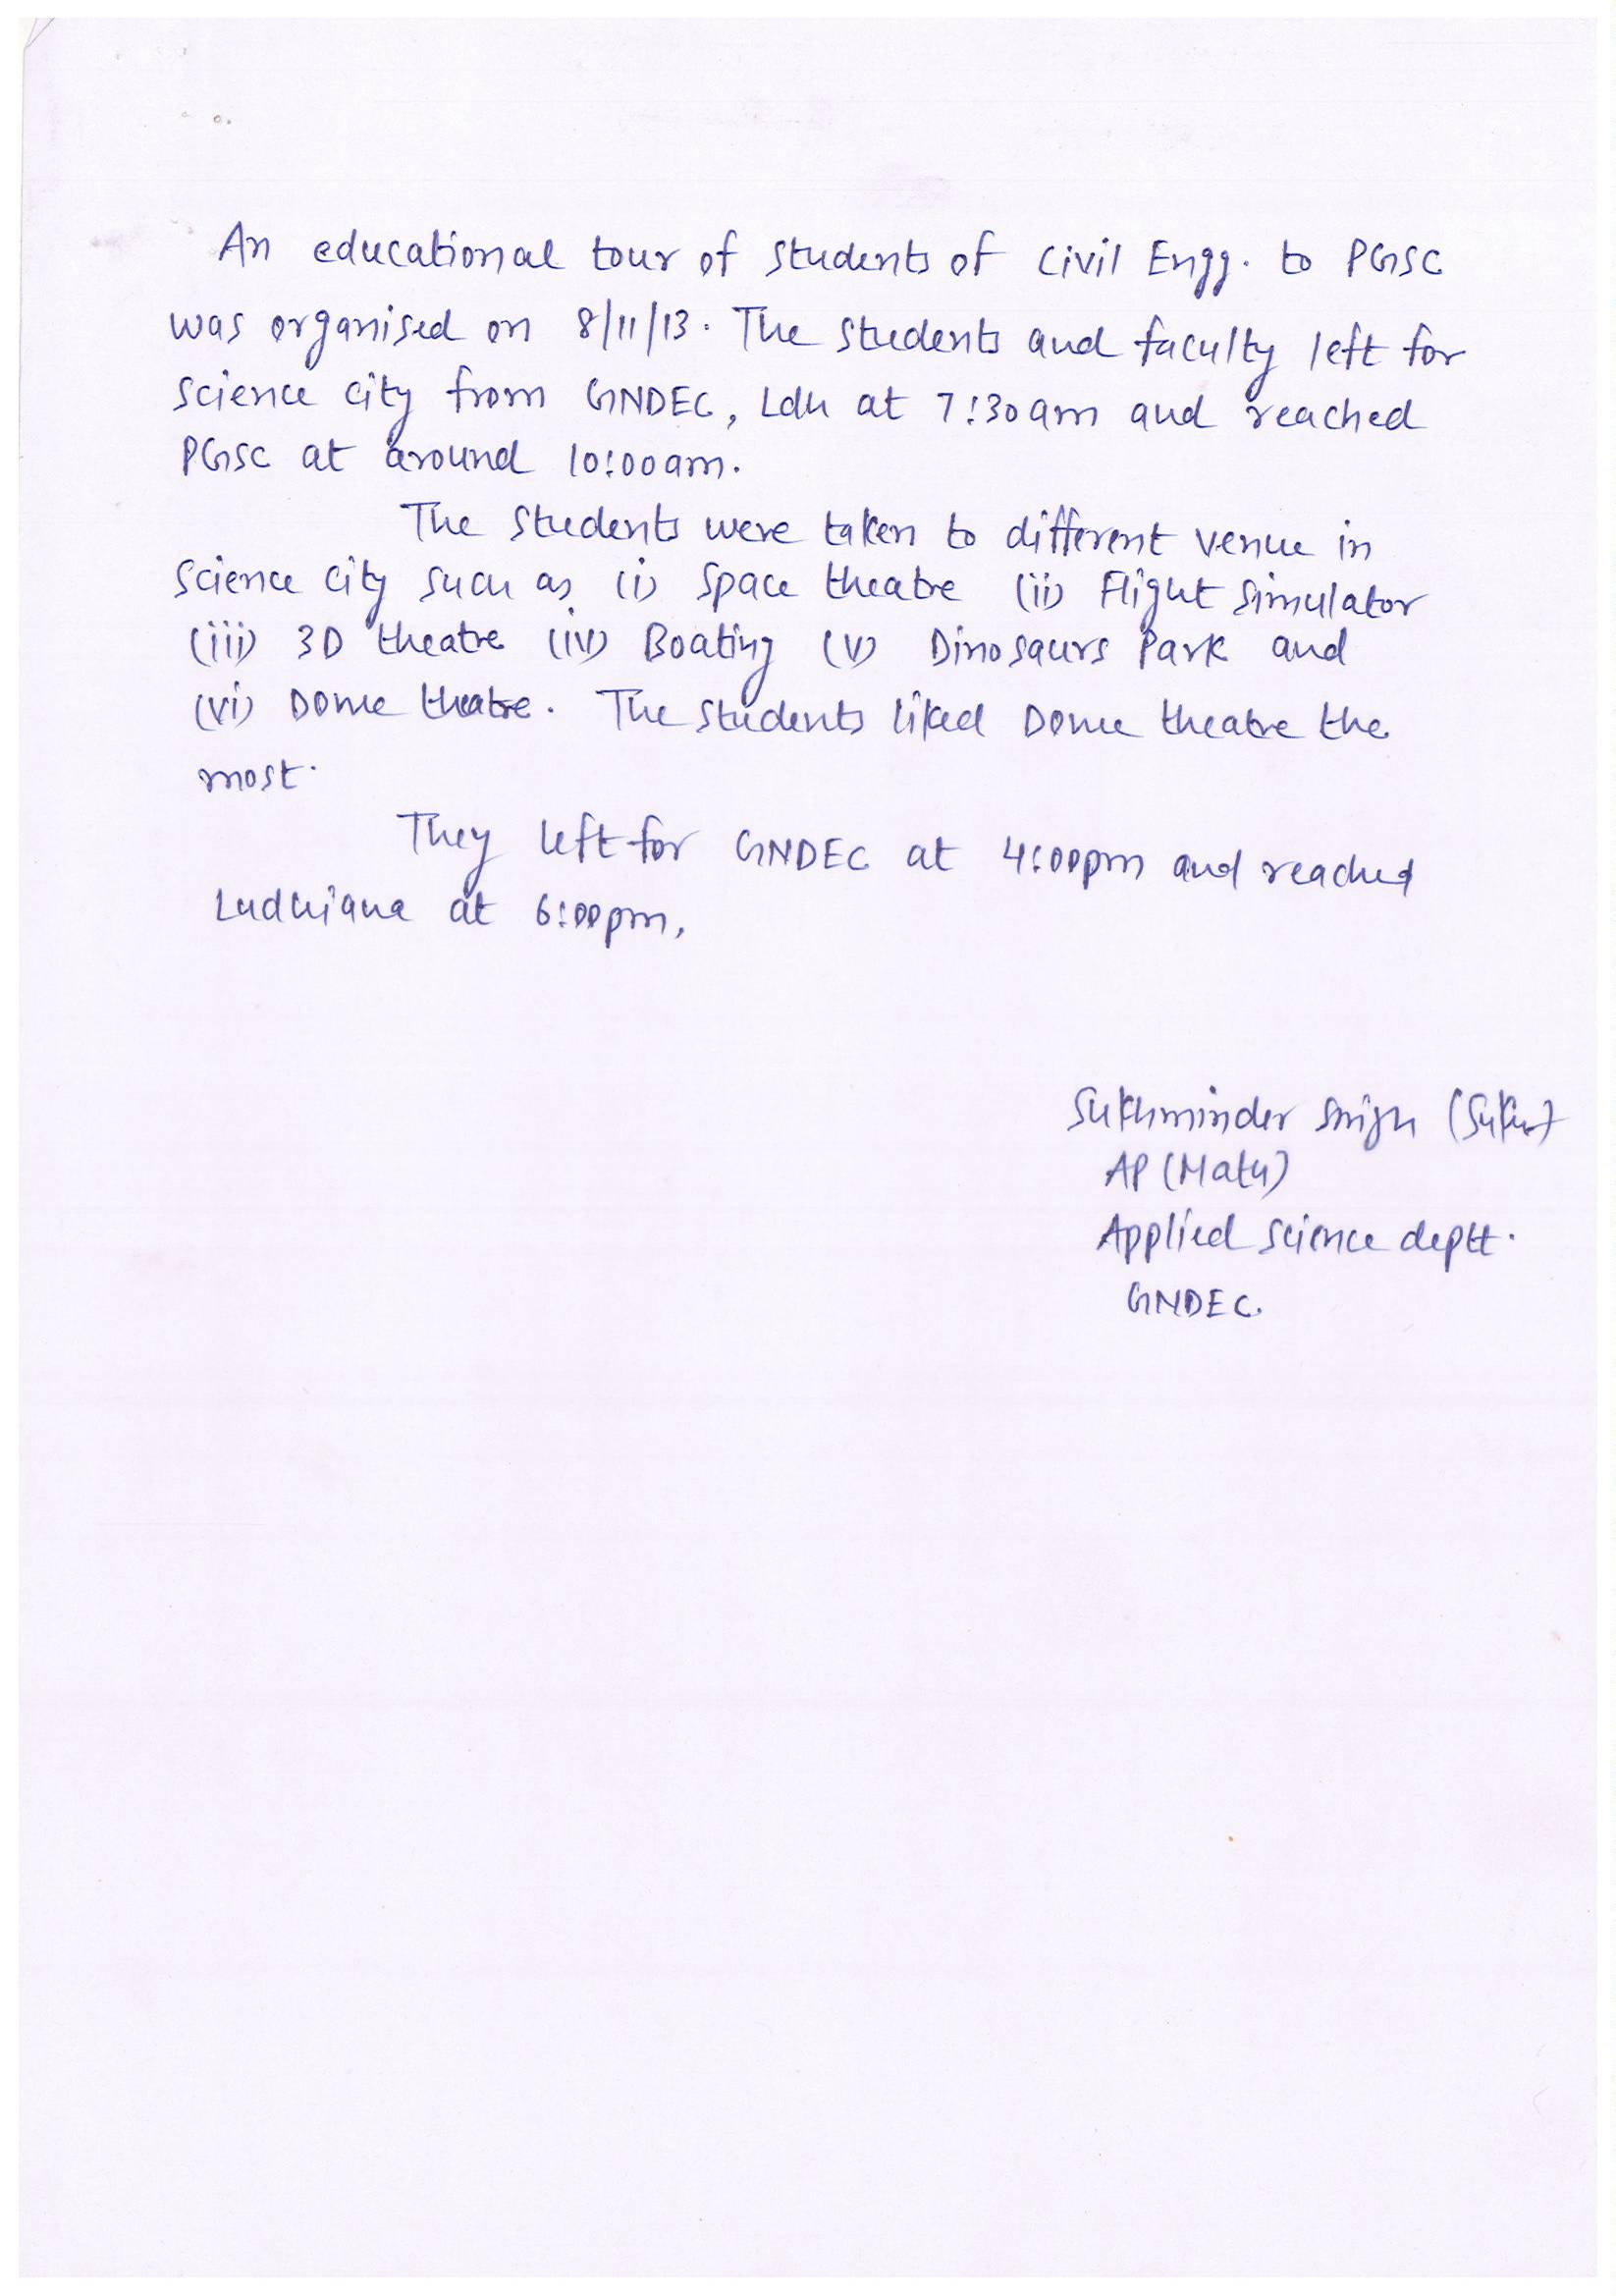 An educational tour of students of Civil Engg. to PGSC
was organised on 8/11/13. The students and faculty left for
science city from GNDEC, Ldh at 7:30am and reached
PGSC at around 10:00am.
The students were taken to different venue in
science city such as (i) Space theatre (ii) Flight simulator
(iii) 3D theatre (iv) Boating (v) Dinosaurs Park and
(vi) Dome theatre. The students liked Dome theatre the
most.
They left for GNDEC at 4:00pm and reached
Ludhiana at 6:00pm.
Sukhminder Singh
AP (Math)
Applied Science deptt.
GNDEC.